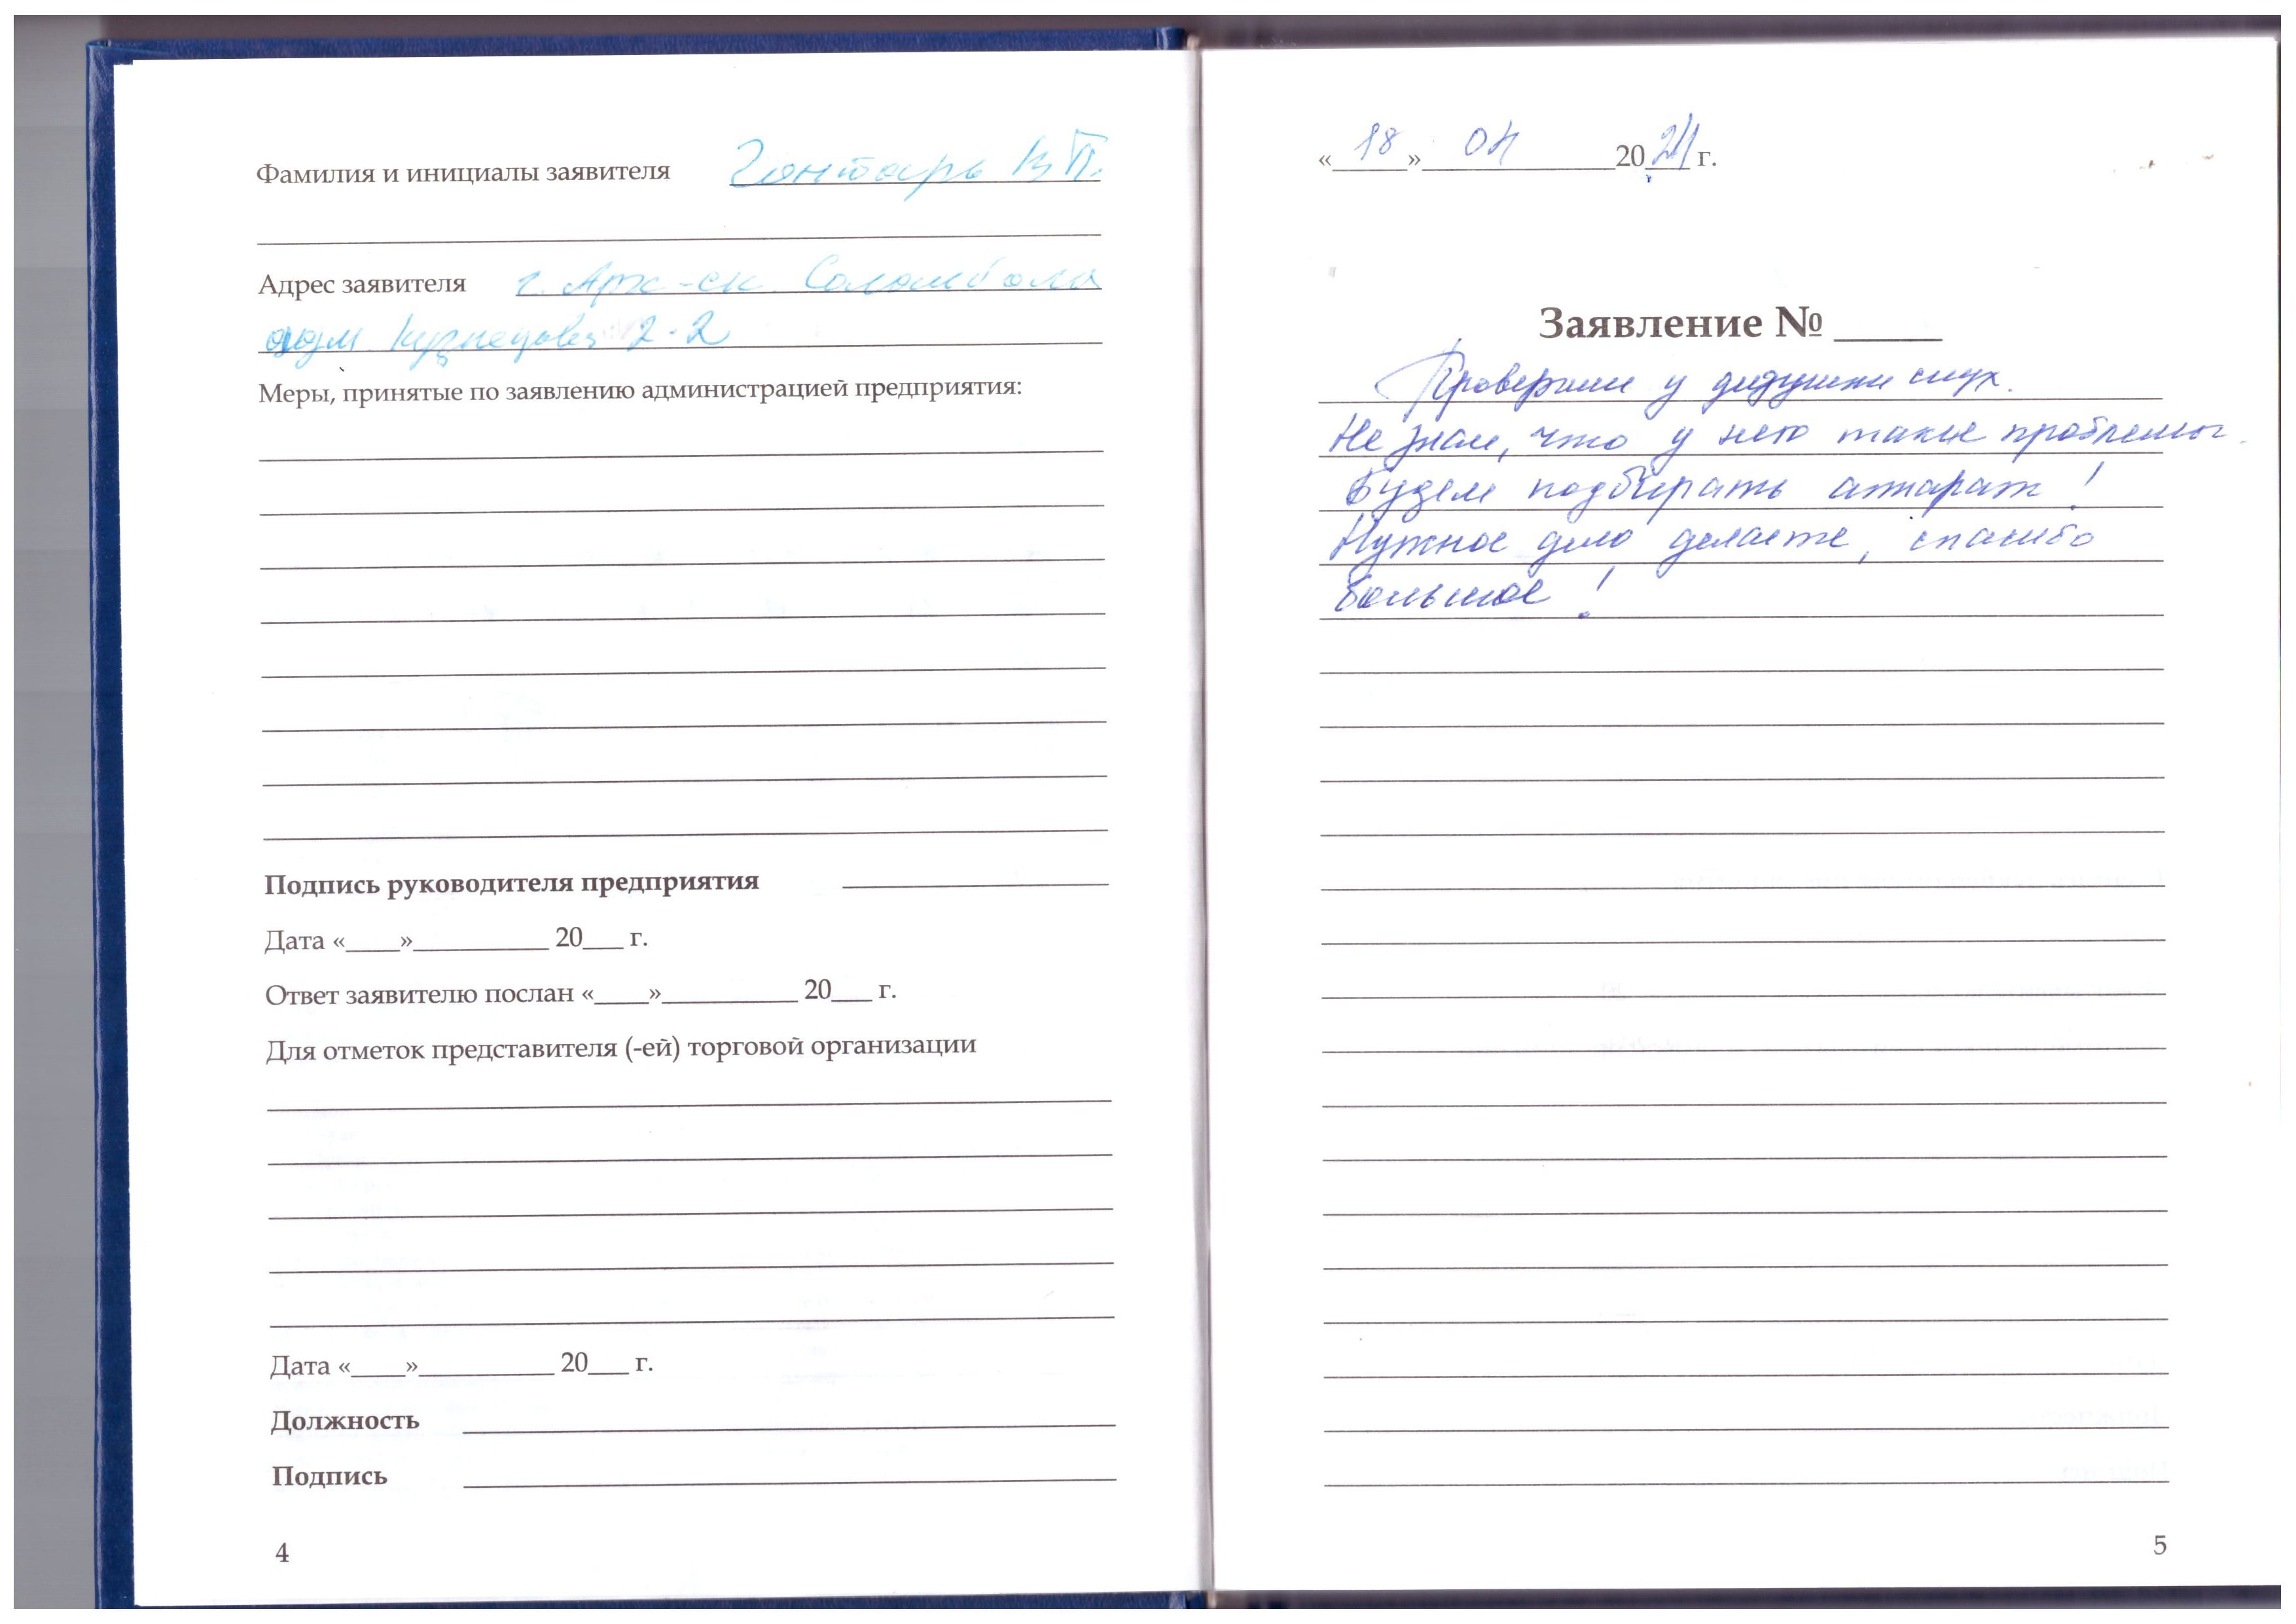 Фамилия и инициалы заявителя В.П.
Адрес заявителя г. Арх-ск Соломбала
адм Кузнецова 2-2
Меры, принятые по заявлению администрацией предприятия:
Подпись руководителя предприятия
Дата «____»__________ 20___ г.
Ответ заявителю послан «____»__________ 20___ г.
Для отметок представителя (-ей) торговой организации
Дата «____»__________ 20___ г.
Должность
Подпись
4
«18» 04 2024 г.
Заявление № _____
Проверили у дедушки слух.
Не знал, что у него такие проблемы
Будем подбирать аппарат!
Нужное дело делаете, спасибо
большое!
5